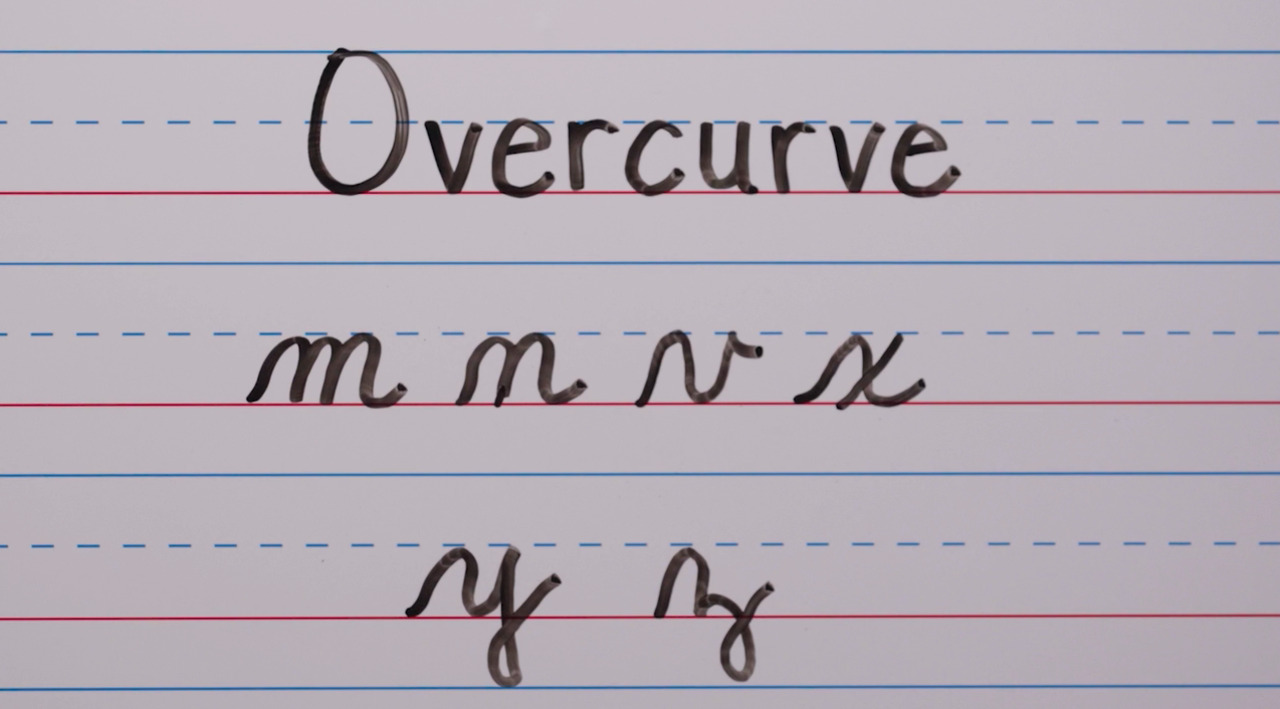 Overcurve
m n v x
y z